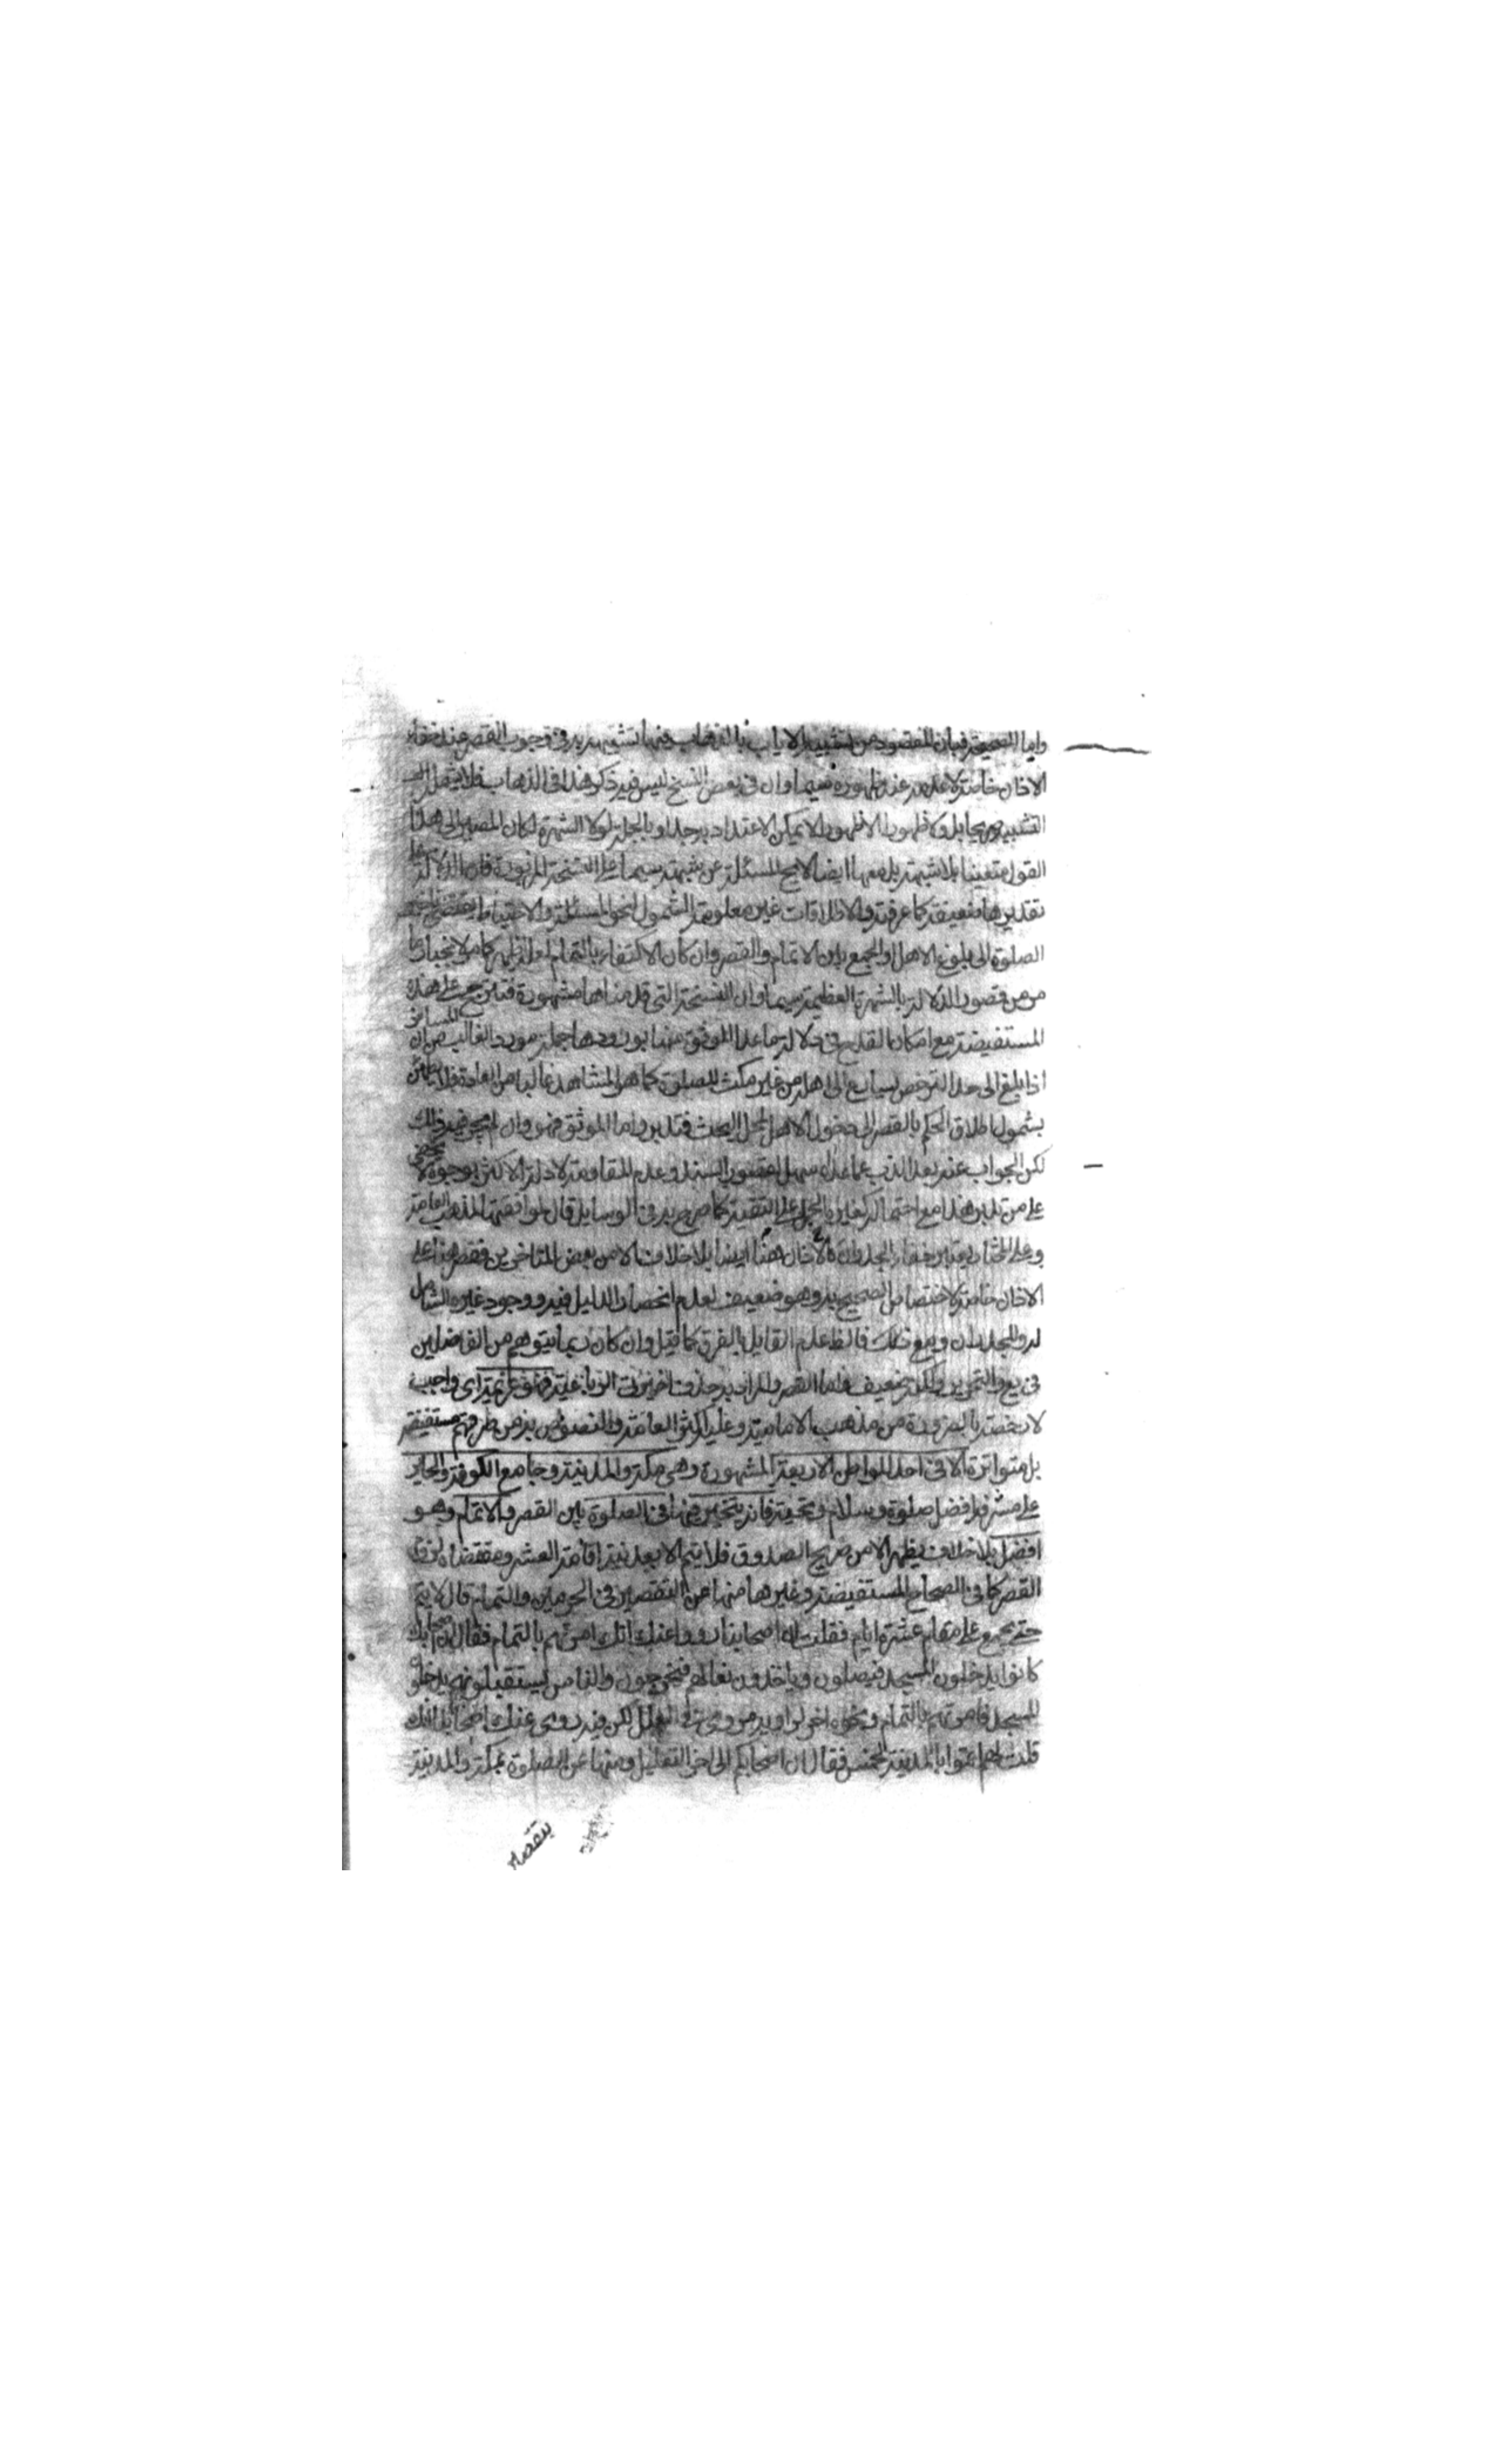 واما الصحيحة فبان المقصود من تشبيه الاياب بالذهاب فيها تشبيهه به في وجوب القصر عند خفاء
الاذان خاصة لا عدمه عند ظهوره سيما وان في بعض النسخ ليس فيه ذكر هذا في الذهاب فلا يشمله
التشبيه ولا ظهور الا ظهورا لا يمكن الاعتداد به جدا وبالجملة لولا الشهرة لكان المصير الى هذا
القول متعينا بلا شبهة بل معها ايضا لا يخ المسئلة عن شبهة سيما على النسخة المزبورة فان الدلالة على
تقديرها ضعيفة كما عرفته والاطلاقات غير معلومة الشمول لنحو المسئلة والاحتياط يقتضي تاخير
الصلوة الى بلوغ الاهل او الجمع بين الاتمام والقصر وان كان الاكتفاء بالتمام لعله اظهر كما مر لانجبار ما
مر من قصور الدلالة بالشهرة العظيمة سيما وان النسخة التي قدمناها مشهورة فتترجح على هذه
المستفيضة مع امكان القدح في دلالة ما عدا الموثق منها بورودها جملة مورد الغالب من ان المسافر
اذا بلغ الى حد الترخص يسارع الى اهله من غير مكث للصلوة كما هو المشاهد غالبا من العادة فلا يطمئن
بشمول اطلاق الحكم بالقصر الى دخول الاهل لمحل البحث فتدبر واما الموثق فهو وان لم يجر فيه ذلك
لكن الجواب عنه بعد الذب عما عداه سهل لقصور السند وعدم المقاومة لادلة الاكثر بوجوه لا تخفى
على من تدبر هذا مع احتماله كغيره الحمل على التقية كما صرح به في الوسايل قال لموافقتها لمذهب العامة
وعلى المختار يعتبر خفاء الجدران كالاذان هنا ايضا بلا خلاف الا من بعض المتاخرين فقصر هنا على
الاذان خاصة لاختصاص الصحيح به وهو ضعيف لعدم انحصار الدليل فيه ووجود غيره الشامل
له وللجدران ومع ذلك فالظ عدم القايل بالفرق كما قيل وان كان ربما يتوهم من الفاضلين
في يع والتحرير ولكنه ضعيف واما القصر والمراد به حذف اخيرتي الرباعية فهو عزيمة اى واجب
لا رخصة بالضرورة من مذهب الامامية وعليه اكثر العامة والنصوص به من طرقهم مستفيضة
بل متواترة الا في احد المواطن الاربعة المشهورة وهي مكة والمدينة وجامع الكوفة والحاير
على مشرفه افضل صلوة وسلام وتحية فانه يتخير فيها في الصلوة بين القصر والاتمام وهو
افضل بلا خلاف يظهر الا من صريح الصدوق فلا يتم الا بعد نية اقامة العشر ومقتضاه لزوم
القصر كما في الصحاح المستفيضة وغيرها منها عن التقصير في الحرمين والتمام قال لا يتم
حتى يجمع على مقام عشرة ايام فقلت ان اصحابنا رووا عنك انك امرتهم بالتمام فقال ان اصحابك
كانوا يدخلون المسجد فيصلون وياخذون نعالهم فيخرجون والناس يستقبلونهم يدخلون
المسجد فامرتهم بالتمام ونحوه اخر لراويه مروي في العلل لكن فيه روى عنك اصحابنا انك
قلت لهم اتموا بالمدينة لخمس فقال ان اصحابكم الى اخر التعليل ومنها عن الصلوة بمكة والمدينة